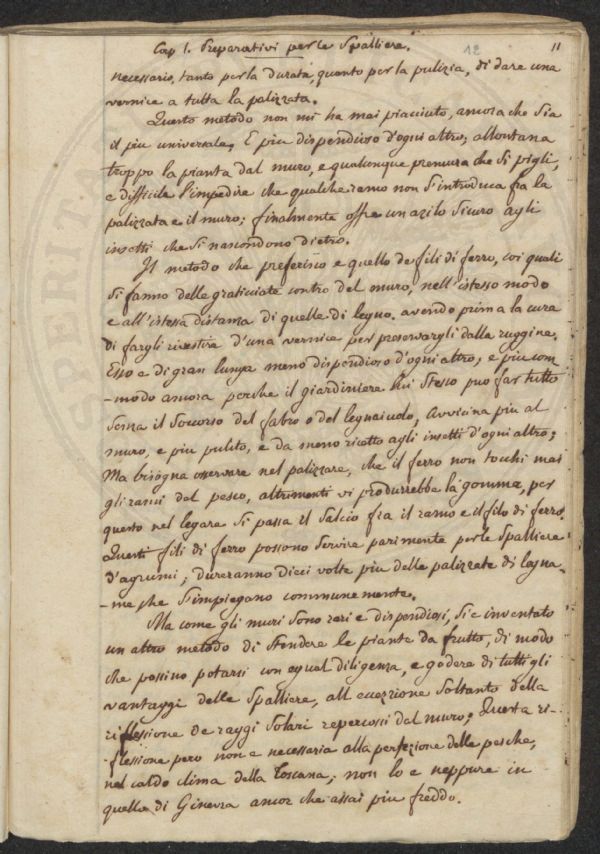 Cap 1. Preparativi per le Spalliere.
12
11
necessario, tanto per la durata, quanto per la pulizia, di dare una
vernice a tutta la palizzata.
Questo metodo non mi ha mai piacciuto, ancora che sia
il piu universale, E piu dispendioso d'ogni altro, allontana
troppo la pianta dal muro, e qualunque premura che si pigli,
e difficile l'impedire che qualche ramo non s'introduca fra la
palizzata e il muro; finalmente offre un azilo sicuro agli
insetti che si nascondono dietro.
Il metodo che preferisco e quello de fili di ferro, coi quali
si fanno delle graticciate contro del muro, nell'istesso modo
e all'istessa distanza di quelle di legno. avendo prima la cura
di fargli rivestire d'una vernice per preservargli dalla ruggine.
Esso e di gran lunga meno dispendioso d'ogni altro, e piu com
-modo ancora perche il giardiniere lui stesso puo far tutto
senza il soccorso del fabro o del legnaiuolo, Avvicina piu al
muro, e piu pulito, e da meno ricetto agli insetti d'ogni altro;
Ma bisogna osservare nel palizzare, che il ferro non tocchi mai
gli rami del pesco, altrimenti vi produrrebbe la gomma, per
questo nel legare si passa il Salcio fra il ramo e il filo di ferro.
Questi fili di ferro possono servire parimente per le Spalliere
d'agrumi, dureranno dieci volte piu delle palizzate di legna-
-me che s'impiegano communemente.
Ma come gli muri sono rari e dispendiosi, si e inventato
un altro metodo di stendere le piante da frutto, di modo
che possino potarsi con egual diligenza, e godere di tutti gli
vantaggi delle Spalliere, all eccezzione soltanto della
riflessione de raggi Solari repercossi dal muro; Questa ri-
-flessione pero non e necessaria alla perfezione delle pesche,
nel caldo clima della Toscana, non lo e neppure in
quello di Ginevra ancor che assai piu freddo.